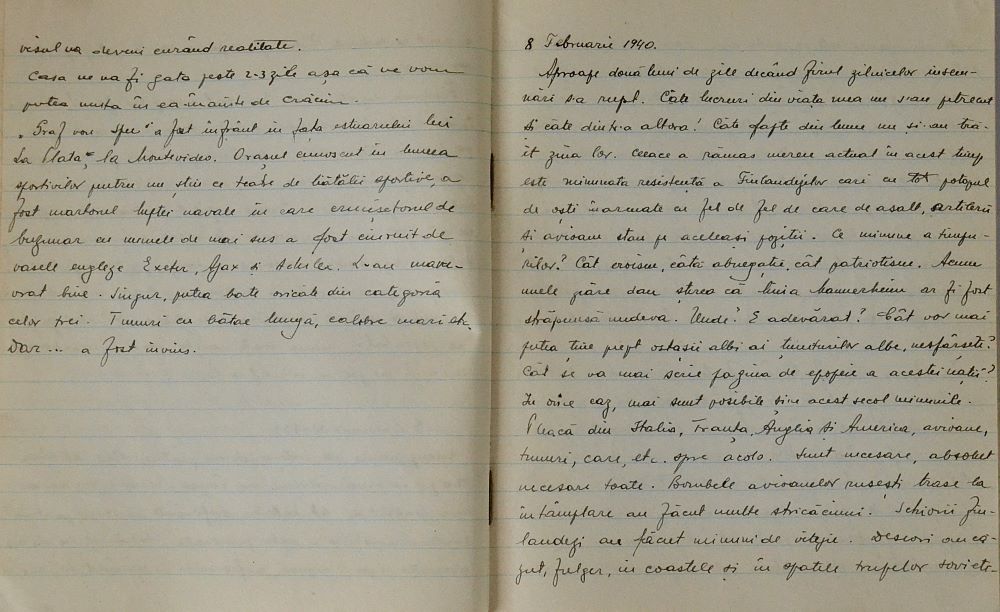 visul va deveni curând realitate.
Casa ne va fi gata peste 2-3 zile așa că ne vom
putea muta în ea înainte de Crăciun.
„Graf von Spee" a fost înfrânt în fața estuarului lui
La Plata, la Montevideo. Orașul cunoscut în lumea
sportivilor pentru nu știu ce teafe de bătălii sportive, a
fost martorul luptei navale în care crucișetorul de
buzunar cu numele de mai sus a fost ciuruit de
vasele engleze Exeter, Ajax și Achiles. L-au mane-
vrat bine. Singur, putea bate oricare din categoria
celor trei. Tunuri cu bătae lungă, calibre mari etc.
Dar... a fost învins.
8 Februarie 1940.
Aproape două luni de zile decând firul zilnicelor însem-
nări s'a rupt. Câte lucruri din viața mea nu s'au petrecut
și câte dintr'a altora! Câte fapte din lume nu și-au tră-
it ziua lor. Ceeace a rămas mereu actual în acest timp
este minunata resistență a Finlandejilor cari cu tot potopul
de oști înarmate cu fel de fel de care de asalt, artilerii
și avioane stau pe aceleași poziții. Ce minune a timpu-
rilor? Cât eroism, câtă abnegație, cât patriotism. Acum
unele ziare dau știrea că linia Mannerheim ar fi fost
străpunsă undeva. Unde? E adevărat? Cât vor mai
putea ține piept ostașii albi ai ținuturilor albe, nesfârșite?
Cât se va mai scrie pagina de epopeie a acestei nații?
În orice caz, mai sunt posibile și în acest secol minunile.
Pleacă din Italia, Franța, Anglia și America, avioane,
tunuri, care, etc. spre acolo. Sunt necesare, absolut
necesare toate. Bombele avioanelor rusești trase la
întâmplare au făcut multe stricăciuni. Schiorii fin-
landezi au făcut minuni de vitejie. Deseori au că-
zut, fulger, în coastele și în spatele trupelor sovieti-